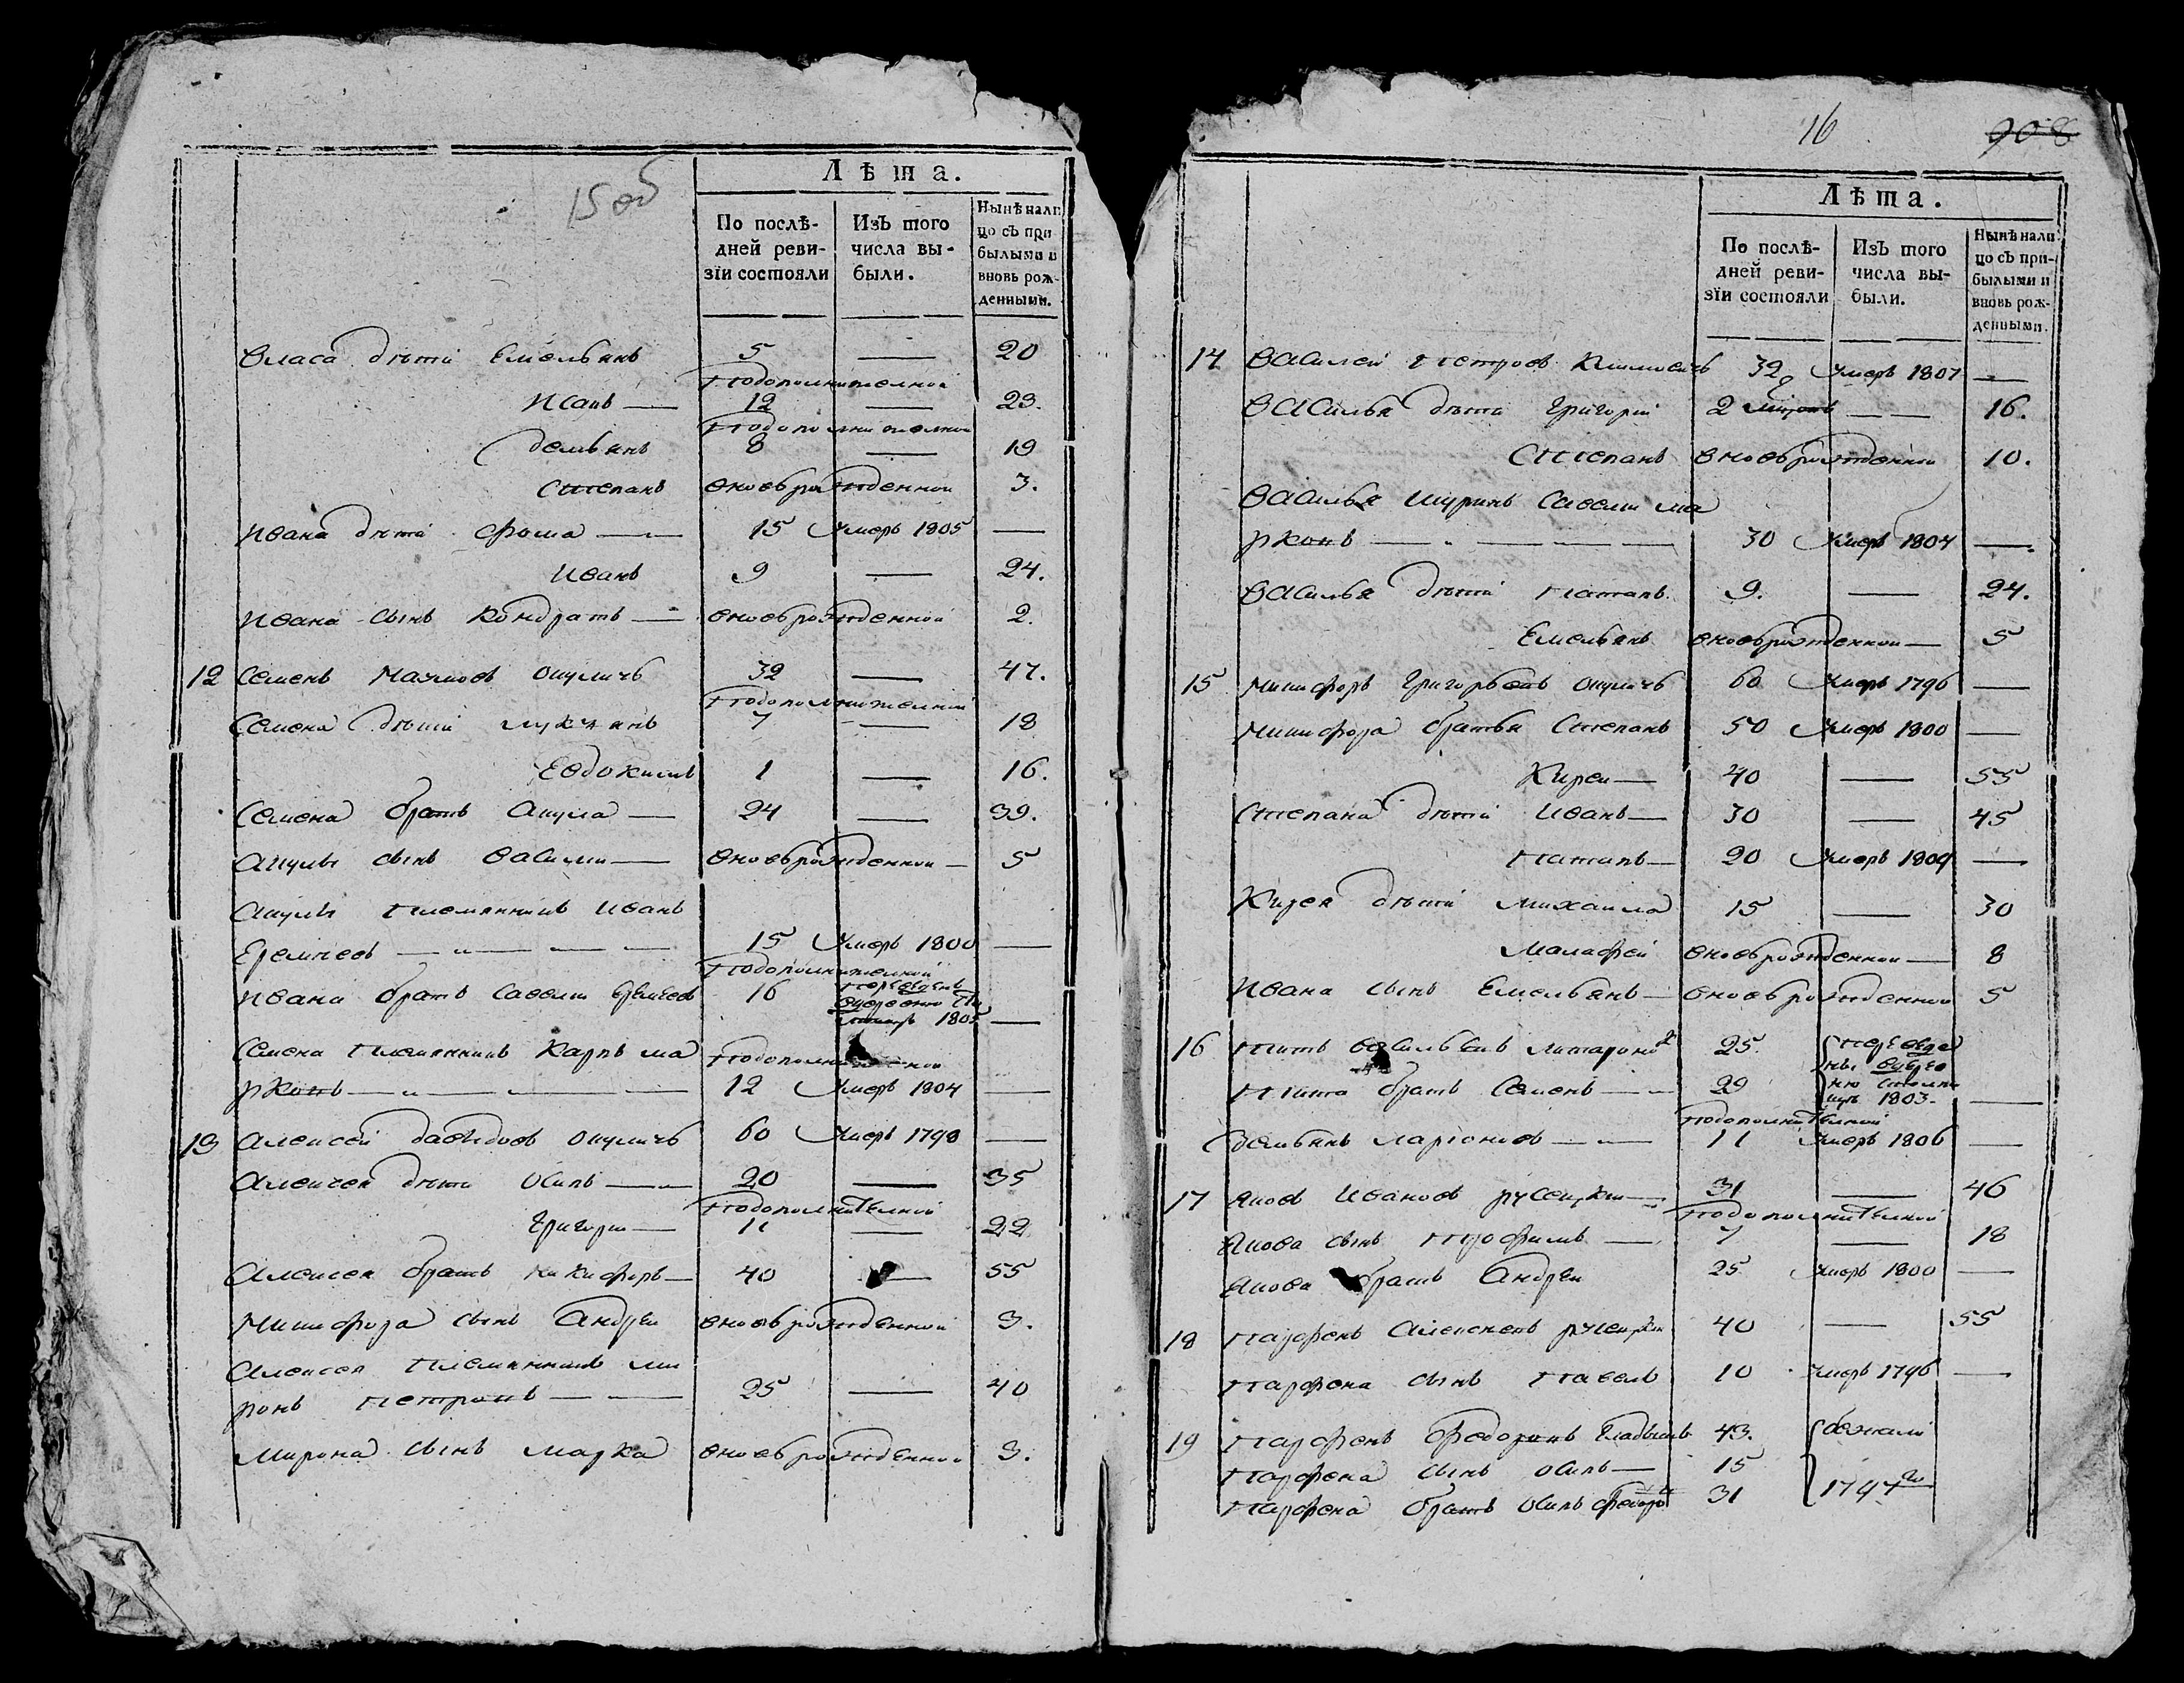 15 об
Лѣта.
По послѣ-
дней реви-
зіи состояли
Изъ того
числа вы-
были.
Нынѣ нали
цо съ при
былыми и
вновь рож-
денными.
Власа дѣти Емельянъ 5 — 20
подополнителной
Исакъ — 12 — 23.
подополнителной
Демьянъ 8 — 19
Степанъ вновьрожденной 3.
Ивана дѣти Фома — 15 Умеръ 1805 —
Иванъ 9 — 24.
Ивана сынъ Кондратъ — вновьрожденной 2.
12 Семенъ Наумовъ 32 — 47.
подополнителной
Семена дѣти Лукьянъ 7 — 18
Евдокимъ 1 — 16.
Семена братъ Акула — 24 — 39.
Акулы сынъ Васили — вновьрожденной — 5
Акулы племянникъ Иванъ
Еремѣевъ — 15 Умеръ 1800 —
подополнителной
Ивана братъ Савели Еремѣевъ 16 переведенъ
1805 —
Семена племянникъ Карпъ ма подополнителной
рковъ — 12 Умеръ 1804 —
13 Алексей Давидовъ 60 Умеръ 1798 —
Алексея дѣти Осипъ — 20 — 35
подополнителной
Григори — 11 — 22
Алексея братъ Никифоръ — 40 — 55
Никифора сынъ Андреи вновьрожденной 3.
Алексея племянникъ ми
ронъ Петровъ — 25 — 40
Мирона сынъ Марка вновьрожденной 3.
16 908
Лѣта.
По послѣ-
дней реви-
зіи состояли
Изъ того
числа вы-
были.
Нынѣ нали
цо съ при-
былыми и
вновь рож-
денными.
14 Василей Петровъ Климовичъ 32 Умеръ 1807 —
Василья дѣти Григорий 2 — 16.
Степанъ вновьрожденной 10.
Василья шуринъ Савели ма
рковъ — 30 Умеръ 1804 —
Василья дѣти Потапъ 9. — 24.
Емельянъ вновьрожденной — 5
15 Никифоръ Григорьевъ 60 Умеръ 1796 —
Никифора братья Степанъ 50 Умеръ 1800 —
Киреи — 40 — 55
Степана дѣти Иванъ — 30 — 45
Потапъ — 20 Умеръ 1809 —
Кирея дѣти Михаила 15 — 30
Малафей вновьрожденной — 8
Ивана сынъ Емельянъ — вновьрожденной 5
16 Титъ Васильевъ 25. переведе
ны
Тита братъ Семенъ — 29
1803. —
подополнителной
Демьянъ Ларионовъ — 11 Умеръ 1806 —
17 Яковъ Ивановъ Русецки — 31 — 46
подополнителной
Якова сынъ Трофимъ — 7 — 18
Якова братъ Андреи 25 Умеръ 1800 —
18 Парфенъ Алексеевъ Русецки 40 — 55
Парфена сынъ Павелъ 10 Умеръ 1796 —
19 Парфенъ Федоровъ 43. бежали
Парфена сынъ Осипъ — 15 1797го
Парфена братъ Осипъ Федоровъ 31